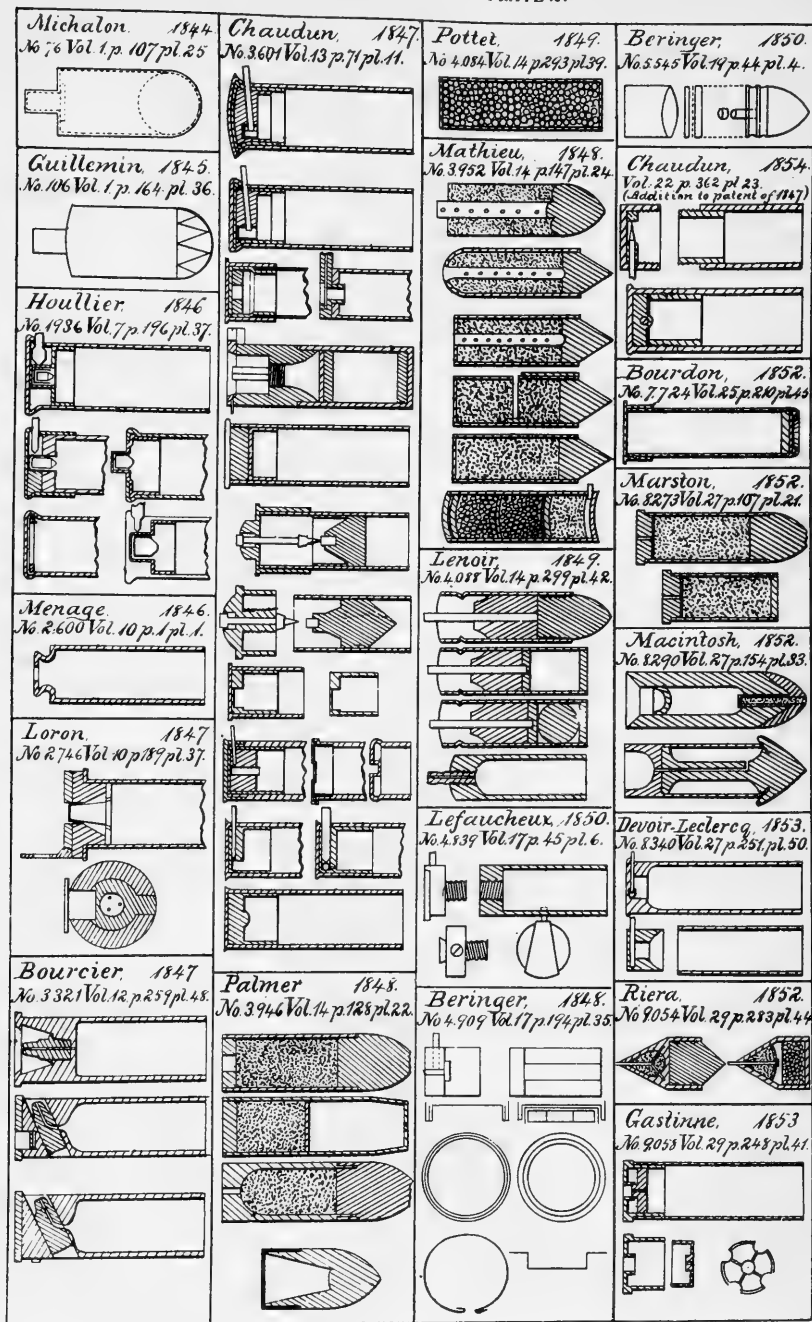 Michalon. 1844.
No 76 Vol. 1. p. 107 pl. 25
Guillemin, 1845.
No. 106 Vol. 1. p. 164. pl. 36.
Houllier. 1846
No. 1936 Vol. 7 p. 196 pl. 37.
Menage. 1846.
No. 2.600 Vol. 10 p. 1 pl. 1.
Loron. 1847
No 2.746 Vol. 10 p. 189 pl. 37.
Bourcier, 1847
No. 3.321 Vol. 12 p. 259 pl. 48.
Chaudun, 1847.
No. 3.601 Vol. 13 p. 71 pl. 11.
Palmer 1848.
No. 3.946 Vol. 14 p. 128 pl. 22.
Pottet, 1849.
No 4.084 Vol. 14 p. 293 pl. 39.
Mathieu, 1848.
No. 3.952 Vol. 14 p. 147 pl. 24.
Lenoir, 1849.
No. 4.088 Vol. 14 p. 299 pl. 42.
Lefaucheux, 1850.
No. 4.839 Vol. 17 p. 45 pl. 6.
Beringer, 1848.
No 4.909 Vol. 17 p. 194 pl. 35.
Beringer, 1850.
No. 5.545 Vol. 19 p. 44 pl. 4.
Chaudun, 1854.
Vol. 22 p. 362 pl 23.
(Addition to patent of 1847)
Bourdon, 1852.
No. 7.724 Vol. 25 p. 210 pl. 45
Marston, 1852.
No. 8273 Vol. 27 p. 107 pl. 21.
Macintosh, 1852.
No. 8290 Vol. 27 p. 154 pl. 33.
Devoir-Leclercq, 1853.
No. 8.340 Vol. 27 p. 251. pl. 50.
Riera, 1852.
No 9.054 Vol. 29 p. 283 pl. 44
Gastinne, 1853
No. 9.058 Vol. 29 p. 248 pl. 41.